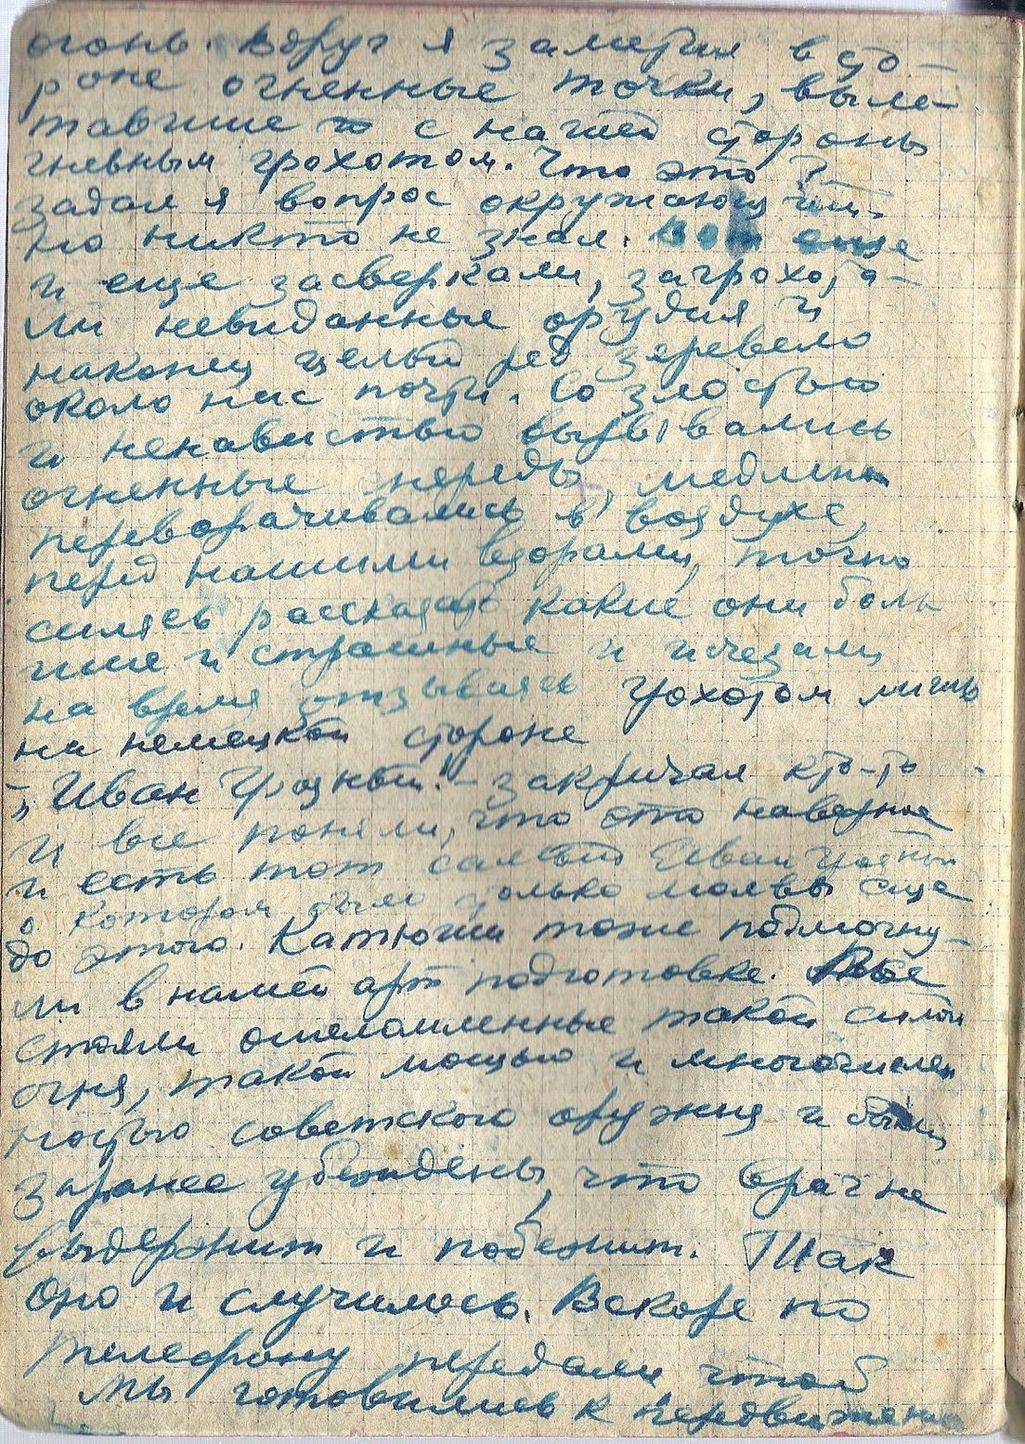 огонь. Вдруг я заметил в сто-
роне огненные точки, выле-
тавшие с нашей стороны
гневным грохотом. Что это?
задал я вопрос окружающим.
но никто не знал. Вот еще
и еще засверкали, загрохота-
ли невиданные орудия и
наконец целый ряд заревело
около нас почти. Со злостью
и ненавистью вырывались
огненные снаряды, медленно
переворачивались в воздухе,
перед нашими взорами, точно
силясь рассказать какие они боль
шие и страшные и исчезали
на время отзываясь грохотом лишь
на немецкой стороне
"Иван Грозный!" - закричал кто-то
и все поняли, что это наверное
и есть тот самый Иван Грозный
о котором было столько молвы еще
до этого. Катюши тоже подмогну-
ли в нашей арт подготовке. Все
стояли ошеломленные такой силой
огня, такой мощью и многочислен
ностью советского оружия и были
заранее убеждены, что враг не
выдержит и побежит. Так
оно и случилось. Вскоре по
телефону передали чтоб
мы готовились к передвижению